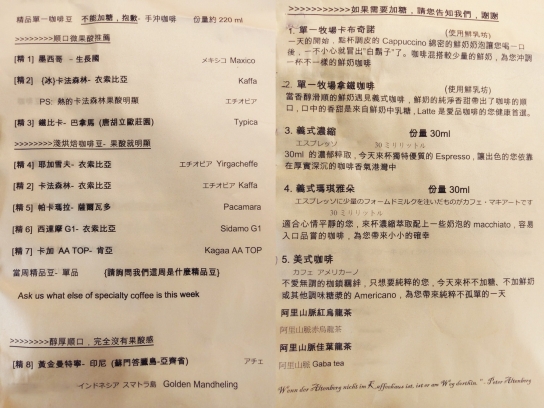 精品單一咖啡豆 不能加糖，抱歉- 手沖咖啡 份量約 220 ml
>>>>>>>>順口微果酸推薦
[精 1] 墨西哥 - 生長國 メキシコ Maxico
[精2] (冰)卡法森林- 衣索比亞 Kaffa
PS: 熱的卡法森林果酸明顯 エチオピア
[精 3] 鐵比卡- 巴拿馬 (唐胡立歐莊園) Typica
>>>>>>>>淺烘焙咖啡豆- 果酸就明顯
[精 4] 耶加雪夫- 衣索比亞 エチオピア Yirgacheffe
[精 2] 卡法森林- 衣索比亞 エチオピア Kaffa
[精5] 帕卡瑪拉- 薩爾瓦多 Pacamara
[精 6] 西達摩 G1- 衣索比亞 Sidamo G1
[精 7] 卡加 AA TOP- 肯亞 Kagaa AA TOP
當周精品豆- 單品 {請詢問我們這周是什麼精品豆}
Ask us what else of specialty coffee is this week
>>>>>>>>醇厚順口，完全沒有果酸感
[精 8] 黃金曼特寧- 印尼 (蘇門答臘島-亞齊省) アチェ
インドネシア スマトラ島 Golden Mandheling
>>>>>>>>>>>>如果需要加糖，請您告知我們，謝謝
1. 單一牧場卡布奇諾 (使用鮮乳坊)
一天的開始，點杯調皮的 Cappuccino 綿密的鮮奶奶泡讓您喝一口
後，一不小心就冒出"白鬍子"了。咖啡混搭較少量的鮮奶，為您沖調
一杯不一樣的鮮奶咖啡
2. 單一牧場拿鐵咖啡 (使用鮮乳坊)
當香醇滑順的鮮奶遇見義式咖啡，鮮奶的純淨香甜帶出了咖啡的順
口，口中的香甜是來自鮮奶中乳糖，Latte 是愛品咖啡的您健康首選。
3. 義式濃縮 份量 30ml
エスプレッソ 30 ミリリットル
30ml 的濃郁粹取，今天來杯獨特優質的 Espresso，讓出色的您依靠
在厚實深沉的咖啡香氣港灣中
4. 義式瑪琪雅朵 份量 30ml
エスプレッソに少量のフォームドミルクを注いだものがカフェ・マキアートです
30 ミリリットル
適合心情平靜的您，來杯濃縮萃取配上一些奶泡的 macchiato，容易
入口品嘗的咖啡，為您帶來小小的確幸
5. 美式咖啡
カフェ アメリカーノ
不愛無謂的枷鎖羈絆，只想要純粹的您，今天來杯不加糖、不加鮮奶
或其他調味糖漿的 Americano，為您帶來純粹不孤單的一天
阿里山脈紅烏龍茶
阿里山脈赤烏龍茶
阿里山脈佳葉龍茶
阿里山脈 Gaba tea
Wenn der Altenberg nicht im Kaffeehaus ist, ist er am Weg dorthin. - Peter Altenberg